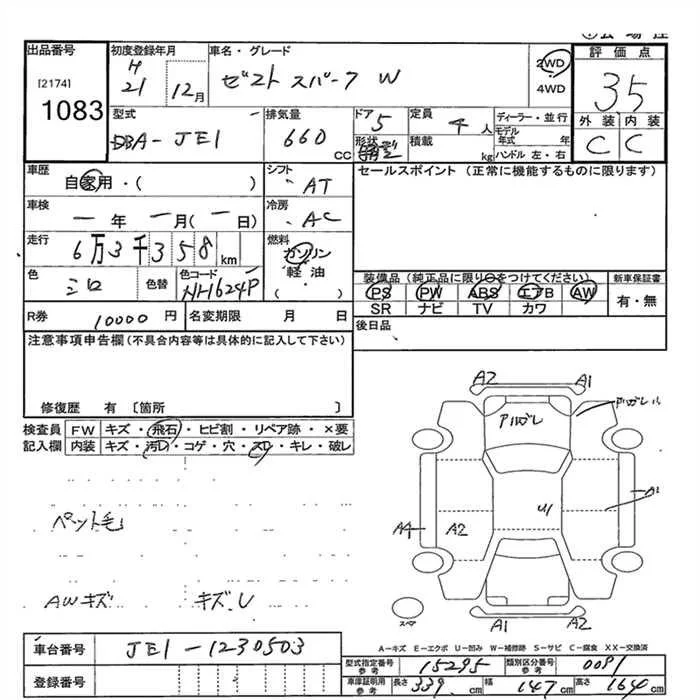 出品番号
[2174]
1083
初度登録年月
H
21 12月
車名・グレード
ゼスト スパーク W
2WD
4WD
評価点
35
外装 内装
C C
型式
DBA- JE1
排気量
660 CC
ドア
5
形状
定員
4人
積載 kg
ディーラー・並行
モデル年式 年
ハンドル 左・右
車歴
自家用・( )
シフト
AT
セールスポイント (正常に機能するものに限ります)
車検
一年 一月(一日)
冷房
AC
走行
6万3千358km
燃料
ガソリン
軽油
( )
色
シロ
色替
色コード
NH624P
装備品(純正品に限り○をつけてください)
新車保証書
PS PW ABS エアB AW
有・無
SR ナビ TV カワ
R券 10000円
名変期限 月 日
後日品
注意事項申告欄(不具合内容等は具体的に記入して下さい)
修復歴 有 〔箇所 〕
検査員
記入欄
FW キズ・飛石・ヒビ割・リペア跡・×要
内装 キズ・汚レ・コゲ・穴・スレ・キレ・破レ
ペット毛
AWキズ キズ、U
A2 A1
A4 A2 U1 A1
A1 A2
車台番号
JE1-1230503
登録番号
A-キズ E-エクボ U-凹み W-補修跡 S-サビ C-腐食 XX-交換済
型式指定番号
参考
15295
類別区分番号
参考
0091
車庫証明用
参考
長さ 339cm
幅 147cm
高さ 164cm